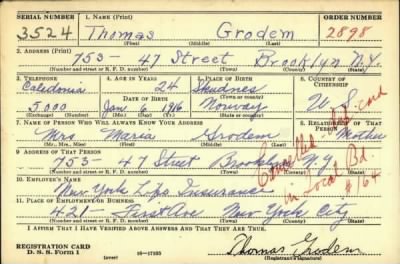 SERIAL NUMBER 1. NAME (Print) ORDER NUMBER
3524 Thomas Grodem 2898
(First) (Middle) (Last)
2. ADDRESS (Print)
753 - 47 Street Brooklyn N.Y.
(Number and street or R. F. D. number) (Town) (County) (State)
3. TELEPHONE 4. AGE IN YEARS 5. PLACE OF BIRTH 6. COUNTRY OF CITIZENSHIP
Caledonia 24 Skudnes
DATE OF BIRTH (Town or county)
5,000 Jan 6 1916 Norway U.S.
(Exchange) (Number) (Mo.) (Day) (Yr.) (State or country)
7. NAME OF PERSON WHO WILL ALWAYS KNOW YOUR ADDRESS 8. RELATIONSHIP OF THAT PERSON
Mrs Maria Grodem Mother
(Mr., Mrs., Miss) (First) (Middle) (Last)
9. ADDRESS OF THAT PERSON
753 - 47 Street Brooklyn N.Y.
(Number and street or R. F. D. number) (Town) (County) (State)
Cancelled card
in Local Bd.
#164
10. EMPLOYER'S NAME
New York Life Insurance
11. PLACE OF EMPLOYMENT OR BUSINESS
421 - First Ave New York City
(Number and street or R. F. D. number) (Town) (County) (State)
I AFFIRM THAT I HAVE VERIFIED ABOVE ANSWERS AND THAT THEY ARE TRUE.
REGISTRATION CARD
D. S. S. Form 1 (over) 16—17105 Thomas Grodem
(Registrant's signature)